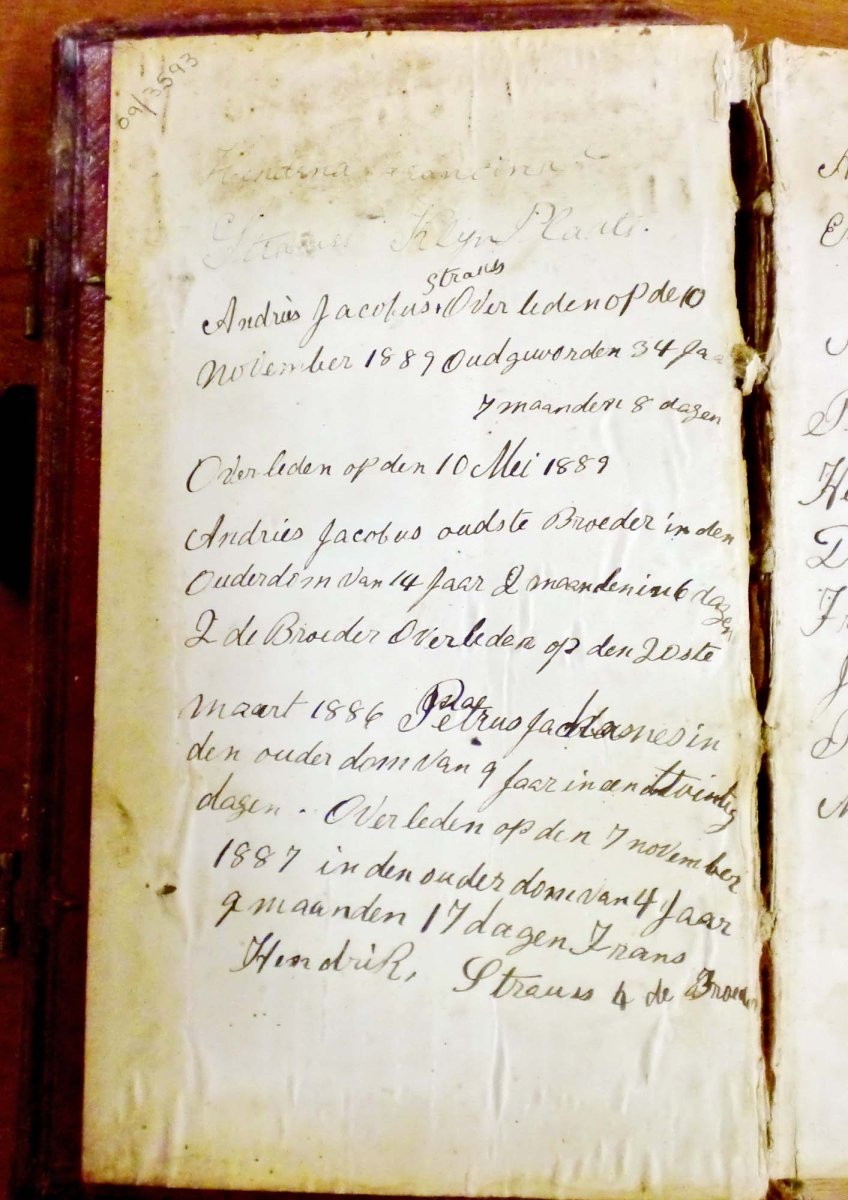 09/3593
Hendrina Francina
Strauss Klyn Plaats.
Strauss
Andries Jacobus, Overleden op de 10
November 1889 Oud geworden 34 Jaa
7 maanden 8 dagen
Overleden op den 10 Mei 1889
Andries Jacobus oudste Broeder in den
Ouderdom van 14 Jaar 2 maanden in 6 dagen
2 de Broeder Overleden op den 20ste
maart 1886 Petrus in
den ouderdom van 9 Jaar in een twintig
dagen. Overleden op den 7 november
1887 in den ouderdom van 4 Jaar
9 maanden 17 dagen Frans
Hendrik, Strauss 4 de Broeder